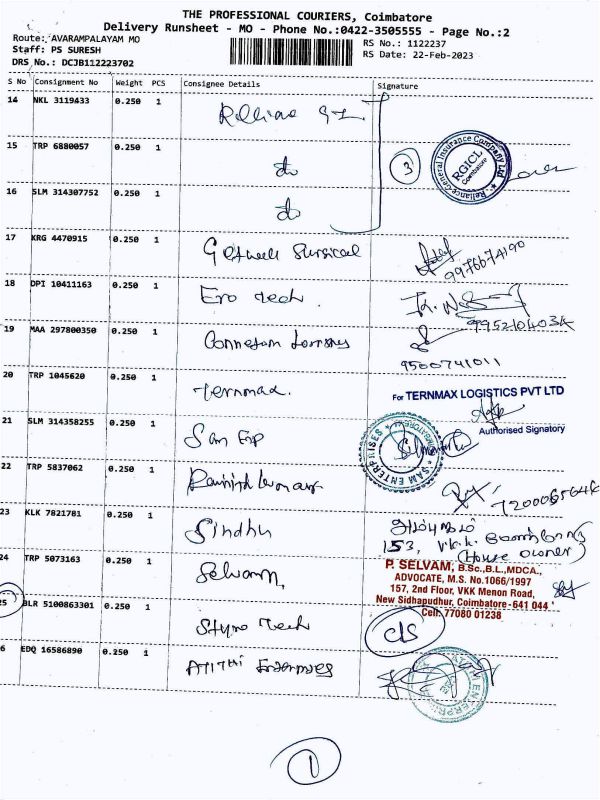 THE PROFESSIONAL COURIERS, Coimbatore
Delivery Runsheet - MO - Phone No.:0422-3505555 - Page No.:2
Route: AVARAMPALAYAM MO
RS No.: 1122237
Staff: PS SURESH
RS Date: 22-Feb-2023
DRS No.: DCJB112223702
S No Consignment No Weight PCS Consignee Details Signature
14 NKL 3119433 0.250 1
15 TRP 6880057 0.250 1 do 3
Reliance General Insurance Company Ltd
RGICL
Coimbatore
16 SLM 314307752 0.250 1 do
17 KRG 4470915 0.250 1 Getwell Surgical
9976674190
18 DPI 10411163 0.250 1 Ero tech
19 MAA 297800350 0.250 1
9500741011
20 TRP 1045620 0.250 1 Ternmax.
For TERNMAX LOGISTICS PVT LTD
Authorised Signatory
21 SLM 314358255 0.250 1 Sam Exp
SAM ENTERPRISES
22 TRP 5837062 0.250 1
23 KLK 7821781 0.250 1 Sindhu
153, V.K.K.
(House owner)
24 TRP 5073163 0.250 1 Selvam,
P. SELVAM, B.Sc.,B.L.,MDCA.,
ADVOCATE, M.S. No.1066/1997
157, 2nd Floor, VKK Menon Road,
New Sidhapudhur, Coimbatore-641 044
Cell: 77080 01238
25 BLR 5100863301 0.250 1 Styro Tech C/S
6 EDQ 16586890 0.250 1
1